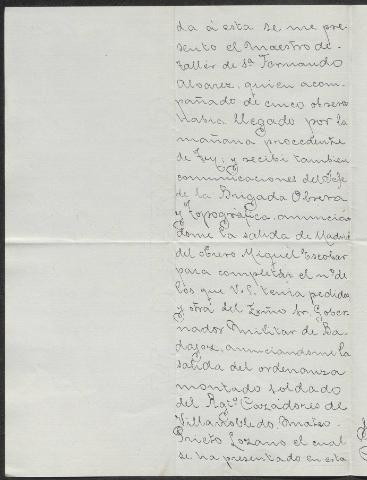 da á esta se me pre-
sento el Maestro de
taller de 1ª Fernando
Alvarez, quien acom-
pañado de cinco obreros
habia llegado por la
mañana procedente
de Tuy; y recibi tambien
comunicaciones del Jefe
de la Brigada Obrera
y Topográfica, anuncian
dome la salida de Madrid
del obrero Miguel Escobar
para completar el nº de
los que V.E. tenia pedidos
y otra del Exmo Sr. Gober-
nador Militar de Ba-
dajoz, anunciandome la
salida del ordenanza
montado soldado
del Regtº Cazadores de
Villarrobledo, Mateo
Prieto Lozano el cual
se ha presentado en esta